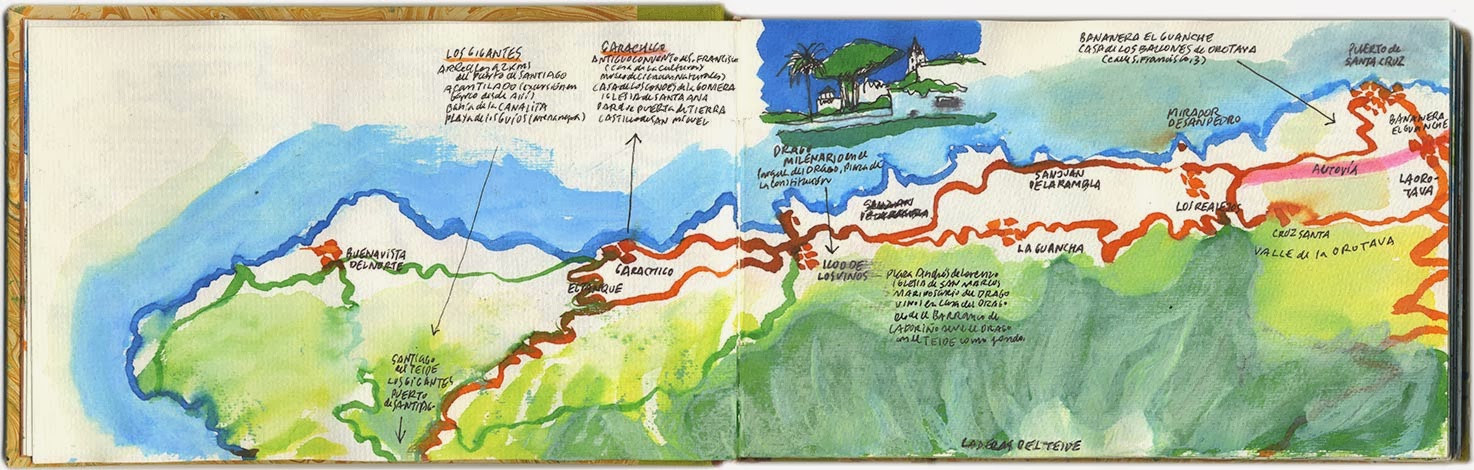 LOS GIGANTES
del PUERTO de SANTIAGO
ACANTILADO (excursión en
barco desde allí)
BAHÍA de la CANALITA
PLAYA de LOS GUÍOS (arena negra)
GARACHICO
ANTIGUO CONVENTO de S. FRANCISCO
(Casa de la Cultura y
Museo de Ciencias Naturales)
CASA de LOS CONDES de la GOMERA
IGLESIA de SANTA ANA
PARQUE PUERTA de TIERRA
CASTILLO de SAN MIGUEL
DRAGO
MILENARIO en el
Parque del DRAGO, Plaza de
la Constitución
BANANERA EL GUANCHE
CASA de LOS BALCONES de OROTAVA
(calle S. Francisco, 3)
PUERTO de
SANTA CRUZ
MIRADOR
DE SAN PEDRO
BANANERA
EL GUANCHE
SAN JUAN
DE LA RAMBLA
SAN JUAN
DE LA RAMBLA
AUTOVÍA
LA ORO-
TAVA
LOS REALEJOS
CRUZ SANTA
LA GUANCHA
VALLE de la OROTAVA
BUENAVISTA
DEL NORTE
GARACHICO
EL TANQUE
ICOD DE
LOS VINOS
Plaza Andrés de Lorenzo
IGLESIA de SAN MARCOS
MARIPOSARIO del DRAGO
VINOS en CASA del DRAGO
desde el BARRANCO de
CABORIÑO se ve el DRAGO
con el TEIDE como fondo
SANTIAGO
del TEIDE
LOS GIGANTES
PUERTO
de SANTIAGO
LADERAS DEL TEIDE